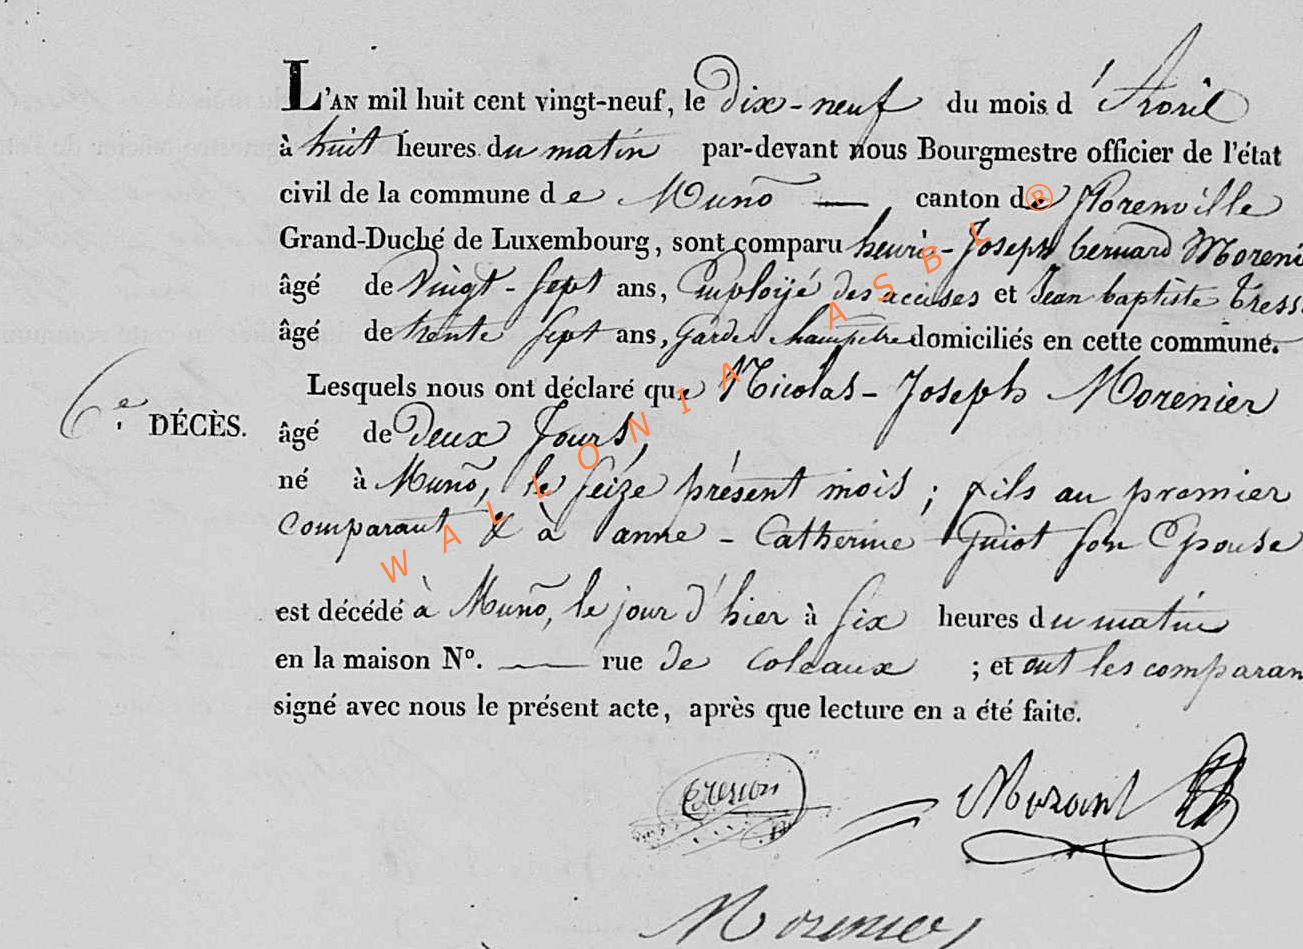 L'AN mil huit cent vingt-neuf, le dix-neuf du mois d'Avril
à huit heures du matin par-devant nous Bourgmestre officier de l'état
civil de la commune de Muño canton de Florenville
Grand-Duché de Luxembourg, sont comparu henri-Joseph bernard Moreni
âgé de vingt-sept ans, Employé des accises et Jean baptiste Tress
âgé de trente sept ans, Garde champetre domiciliés en cette commune.
Lesquels nous ont déclaré que Nicolas-Joseph Morenier
6e DÉCÈS.
âgé de deux Jours,
né à Muño, le seize présent mois ; fils au premier
comparant & à anne-Catherine Guiot son Epouse
est décédé à Muño, le jour d'hier à six heures du matin
en la maison No. rue de coleaux ; et ont les comparan
signé avec nous le présent acte, après que lecture en a été faite.
WALLONIA ASBL ®
Morenier